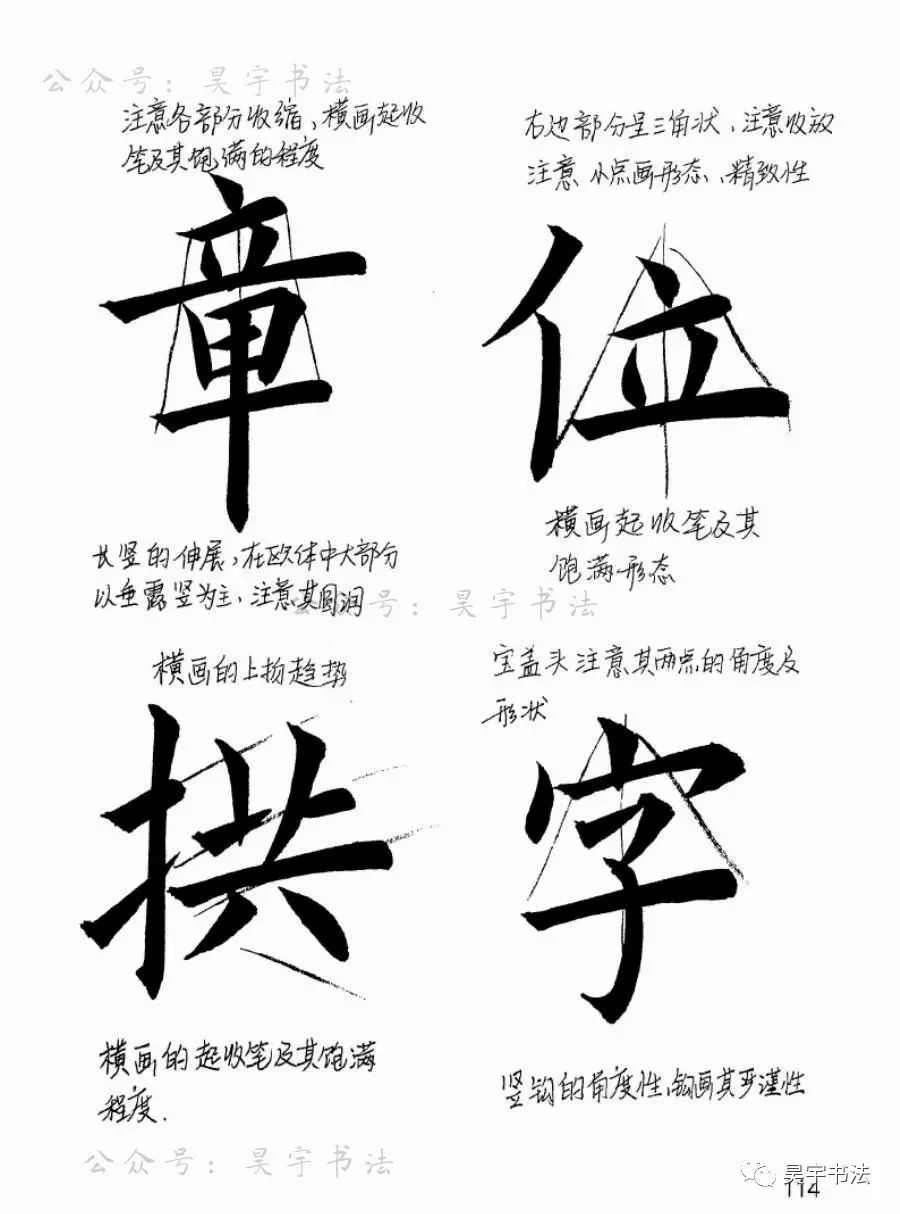 公众号：昊宇书法
注意各部分收缩、横画起收
笔及其饱满的程度
右边部分呈三角状、注意收放
注意小点画形态、精致性
章
位
长竖的伸展，在欧体中大部分
以垂露竖为主、注意其圆润
横画起收笔及其
饱满形态
公众号：昊宇书法
横画的上扬趋势
宝盖头注意其两点的角度及
形状
拱
字
横画的起收笔及其饱满
程度.
竖钩的角度性，钩画其严谨性
公众号：昊宇书法
昊宇书法
114